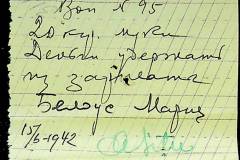 Вон N 95
20 кгр. муки
Деньги удержать
из зарплаты
Белоус Мария
15/5-1942